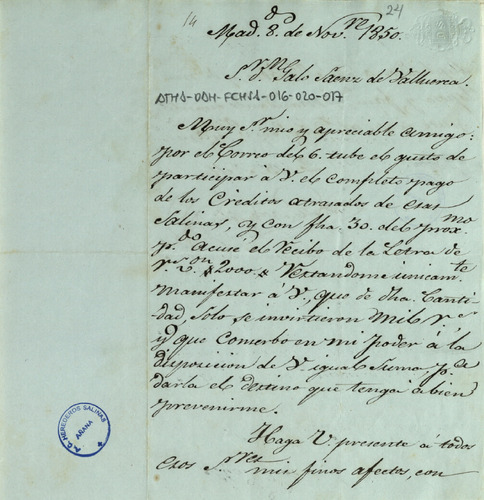 14
24
Mad.d 8. de Nov.re 1850.
S.r D.n Galo Sáenz de Valluerca.
ATHA-DAH-FCHSA-016-020-017
Muy S.r mio y apreciable amigo:
por el Correo del 6. tube el gusto de
participar á V. el completo pago
de los Creditos atrasados de esas
Salinas, y con fha. 30. del prox.mo
p.do acusé el Recibo de la Letra de
r.s v.on 2000. Restandome unicam.te
manifestar á V. que de dha. Canti-
dad, solo se invirtieron Mil r.s
y que conserbo en mi poder á la
disposicion de V. igual suma p.a
darla el destino que tenga á bien
prevenirme.
Haga V. presente á todos
esos S.res mis finos afectos, con
A.C. HEREDEROS SALINAS
AÑANA